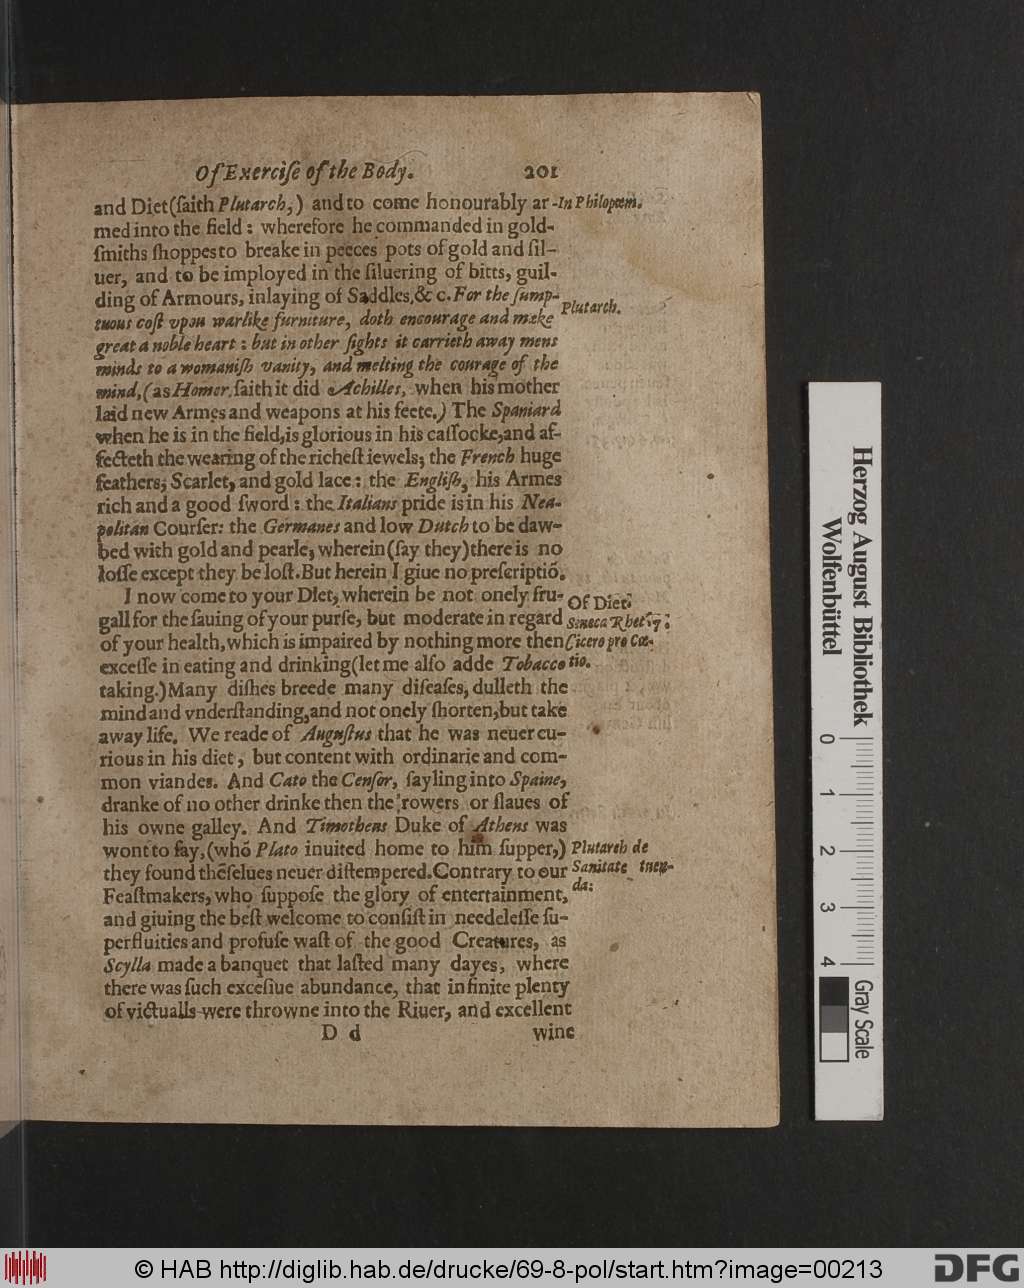 Of Exerciſe of the Body. 201
and Diet (ſaith Plutarch,) and to come honourably ar- In Philopœm.
med into the field : wherefore he commanded in gold-
ſmiths ſhoppes to breake in peeces pots of gold and ſil-
uer, and to be imployed in the ſiluering of bitts, guil-
ding of Armours, inlaying of Saddles,&c. For the ſump-
Plutarch.
tuous coſt vpon warlike furniture, doth encourage and make
great a noble heart : but in other ſights it carrieth away mens
minds to a womaniſh vanity, and melting the courage of the
mind,(as Homer ſaith it did Achilles, when his mother
laid new Armes and weapons at his feete.) The Spaniard
when he is in the field, is glorious in his caſſocke, and af-
fecteth the wearing of the richeſt iewels; the French huge
feathers; Scarlet, and gold lace : the Engliſh, his Armes
rich and a good ſword : the Italians pride is in his Nea-
politan Courſer: the Germanes and low Dutch to be daw-
bed with gold and pearle, wherein (ſay they) there is no
loſſe except they be loſt. But herein I giue no preſcriptiõ.
I now come to your DIet, wherein be not onely fru- Of Diet.
gall for the ſauing of your purſe, but moderate in regard Seneca Rhet:7:
of your health, which is impaired by nothing more then Cicero pro Cœ-
exceſſe in eating and drinking (let me alſo adde Tobacco tio.
taking.) Many diſhes breede many diſeaſes, dulleth the
mind and vnderſtanding, and not onely ſhorten, but take
away life. We reade of Auguſtus that he was neuer cu-
rious in his diet, but content with ordinarie and com-
mon viandes. And Cato the Cenſor, ſayling into Spaine,
dranke of no other drinke then the rowers or ſlaues of
his owne galley. And Timotheus Duke of Athens was
wont to ſay, (whõ Plato inuited home to him ſupper,) Plutarch de
they found thẽſelues neuer diſtempered. Contrary to our Sanitate tuen-
Feaſtmakers, who ſuppoſe the glory of entertainment, da:
and giuing the beſt welcome to conſiſt in needeleſſe ſu-
perfluities and profuſe waſt of the good Creatures, as
Scylla made a banquet that laſted many dayes, where
there was ſuch exceſiue abundance, that infinite plenty
of victualls were throwne into the Riuer, and excellent
D d wine
Herzog August Bibliothek
Wolfenbüttel
0 1 2 3 4
Gray Scale
© HAB http://diglib.hab.de/drucke/69-8-pol/start.htm?image=00213
DFG